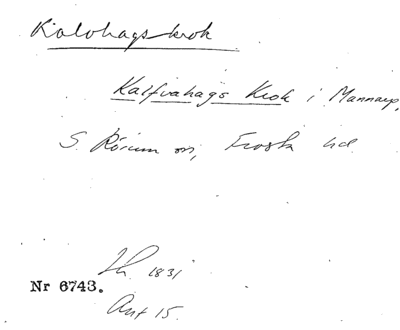 Kalvhagskrok
Kalfvahags Krok i Mannarp,
S. Rörum sn, Frosta hd
1831
Nr 6743.
Akt 15.